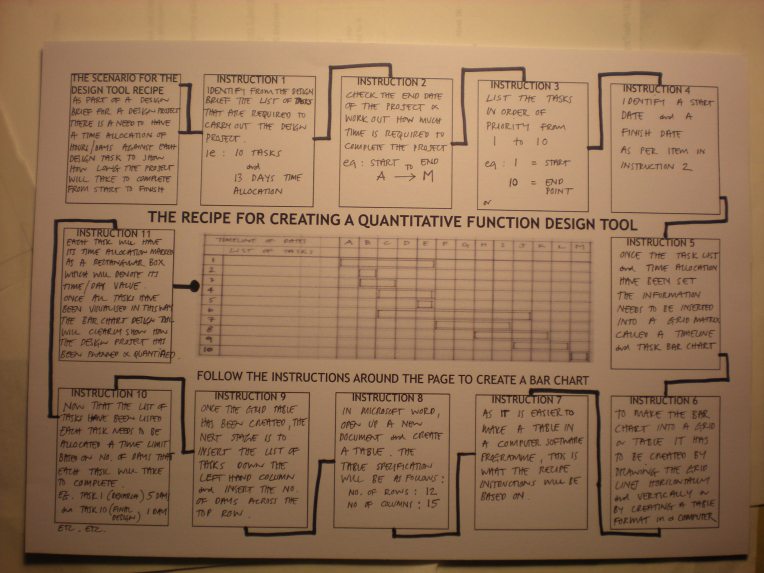 THE SCENARIO FOR THE
DESIGN TOOL RECIPE
AS PART OF A DESIGN
BRIEF FOR A DESIGN PROJECT
THERE IS A NEED TO HAVE
A TIME ALLOCATION OF
HOURS/DAYS AGAINST EACH
DESIGN TASK TO SHOW
HOW LONG THE PROJECT
WILL TAKE TO COMPLETE
FROM START TO FINISH
INSTRUCTION 1
IDENTIFY FROM THE DESIGN
BRIEF THE LIST OF TASKS
THAT ARE REQUIRED TO
CARRY OUT THE DESIGN
PROJECT.
ie : 10 TASKS
and
13 DAYS TIME
ALLOCATION
INSTRUCTION 2
CHECK THE END DATE
OF THE PROJECT &
WORK OUT HOW MUCH
TIME IS REQUIRED TO
COMPLETE THE PROJECT
eg : START TO END
A → M
INSTRUCTION 3
LIST THE TASKS
IN ORDER OF
PRIORITY FROM
1 to 10
eg : 1 = START
10 = END
POINT
or
INSTRUCTION 4
IDENTIFY A START
DATE and A
FINISH DATE
AS PER ITEM IN
INSTRUCTION 2
THE RECIPE FOR CREATING A QUANTITATIVE FUNCTION DESIGN TOOL
INSTRUCTION 11
EACH TASK WILL HAVE
ITS TIME ALLOCATION MARKED
AS A RECTANGULAR BOX
WHICH WILL DENOTE ITS
TIME/DAY VALUE.
ONCE ALL TASKS HAVE
BEEN VISUALISED IN THIS WAY
THE BAR CHART DESIGN TOOL
WILL CLEARLY SHOW HOW
THE DESIGN PROJECT HAS
BEEN PLANNED & QUANTIFIED.
TIMELINE OF DATES A B C D E F G H I J K L M
LIST OF TASKS
1
2
3
4
5
6
7
8
9
10
INSTRUCTION 5
ONCE THE TASK LIST
and TIME ALLOCATION
HAVE BEEN SET
THE INFORMATION
NEEDS TO BE INSERTED
INTO A GRID MATRIX
CALLED A TIMELINE
and TASK BAR CHART
FOLLOW THE INSTRUCTIONS AROUND THE PAGE TO CREATE A BAR CHART
INSTRUCTION 10
NOW THAT THE LIST OF
TASKS HAVE BEEN LISTED
EACH TASK NEEDS TO BE
ALLOCATED A TIME LIMIT
BASED ON NO. OF DAYS THAT
EACH TASK WILL TAKE
TO COMPLETE.
EG. TASK 1 (RESEARCH) 5 DAYS
or TASK 10 (FINAL DESIGN) 1 DAY
ETC. ETC.
INSTRUCTION 9
ONCE THE GRID TABLE
HAS BEEN CREATED, THE
NEXT STAGE IS TO
INSERT THE LIST OF
TASKS DOWN THE
LEFT HAND COLUMN
and INSERT THE NO.
OF DAYS ACROSS THE
TOP ROW.
INSTRUCTION 8
IN MICROSOFT WORD,
OPEN UP A NEW
DOCUMENT and CREATE
A TABLE. THE
TABLE SPECIFICATION
WILL BE AS FOLLOWS :
NO. OF ROWS : 12
NO OF COLUMNS : 15
INSTRUCTION 7
AS IT IS EASIER TO
MAKE A TABLE IN
A COMPUTER SOFTWARE
PROGRAMME, THIS IS
WHAT THE RECIPE
INSTRUCTIONS WILL BE
BASED ON.
INSTRUCTION 6
TO MAKE THE BAR
CHART INTO A GRID
or TABLE IT HAS
TO BE CREATED BY
DRAWING THE GRID
LINES HORIZONTALLY
and VERTICALLY or
BY CREATING A TABLE
FORMAT IN a COMPUTER